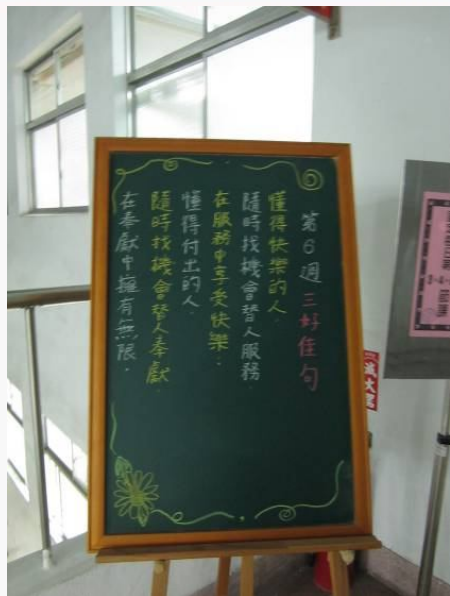 第6週三好佳句
懂得快樂的人,
隨時找機會替人服務,
在服務中享受快樂。
懂得付出的人,
隨時找機會替人奉獻,
在奉獻中擁有無限。
滅火器